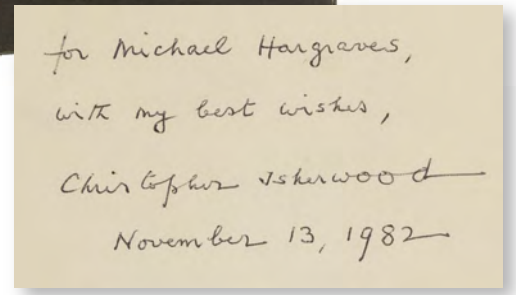 for Michael Hargraves,
with my best wishes,
Christopher Isherwood
November 13, 1982